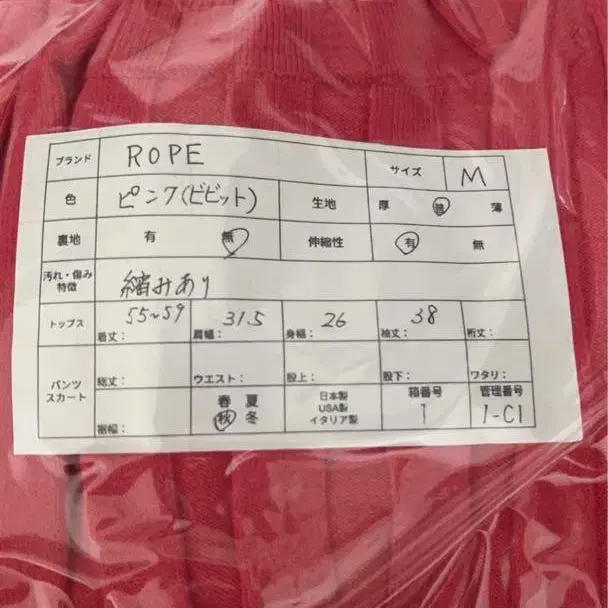 ブランド ROPE サイズ M
色 ピンク(ビビット) 生地 厚 普 薄
裏地 有 無 伸縮性 有 無
汚れ・傷み
特徴 縮みあり
トップス 着丈: 55~59 肩幅: 31.5 身幅: 26 袖丈: 38 裄丈:
パンツ
スカート 総丈: ウエスト: 股上: 股下: ワタリ:
裾幅: 春 夏
秋 冬
日本製
USA製
イタリア製
箱番号
1
管理番号
1-C1